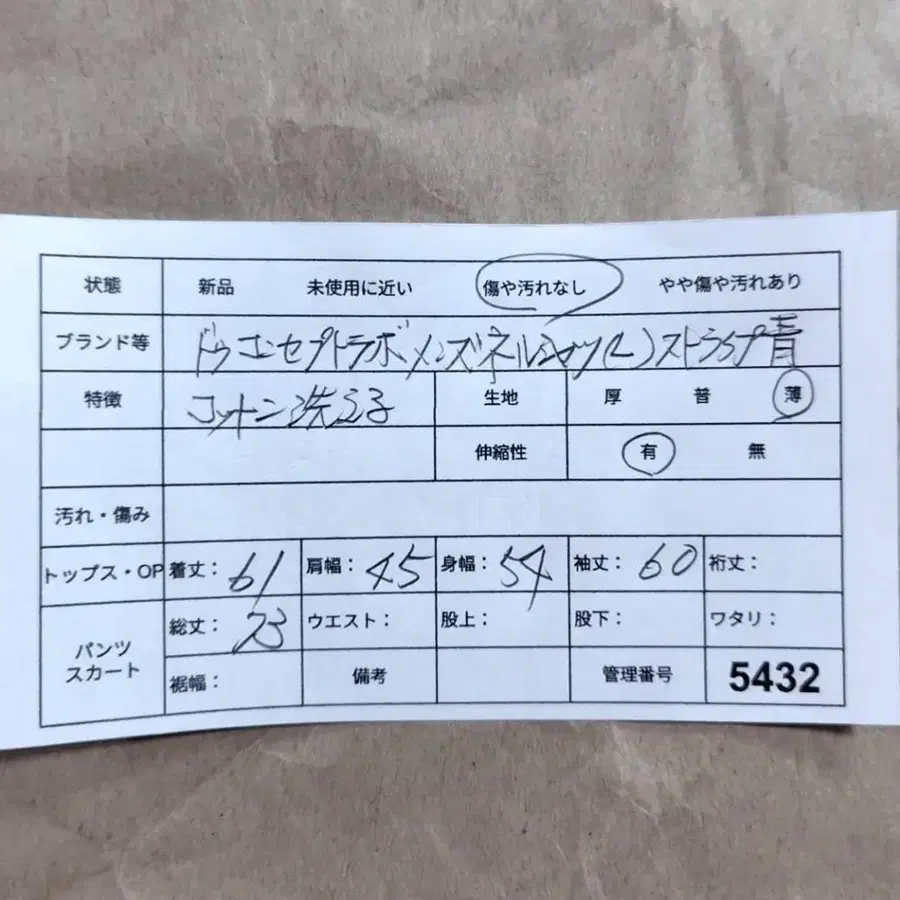 状態 新品 未使用に近い 傷や汚れなし やや傷や汚れあり
ブランド等 ドゥコンセプトラボメンズネルシャツ(L)ストライプ青
特徴 コットン洗える 生地 厚 普 薄
伸縮性 有 無
汚れ・傷み
トップス・OP 着丈: 61 肩幅: 45 身幅: 54 袖丈: 60 裄丈:
パンツ スカート
総丈: 73 ウエスト: 股上: 股下: ワタリ:
裾幅: 備考 管理番号 5432